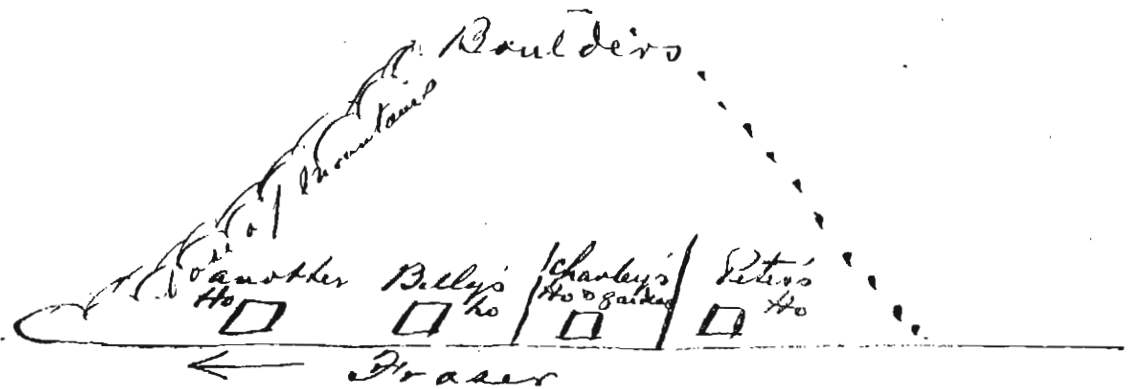 Boulders
foot of mountain
another
Ho
Billy's
ho
Charley's
Ho & garden
Peter's
Ho
Fraser